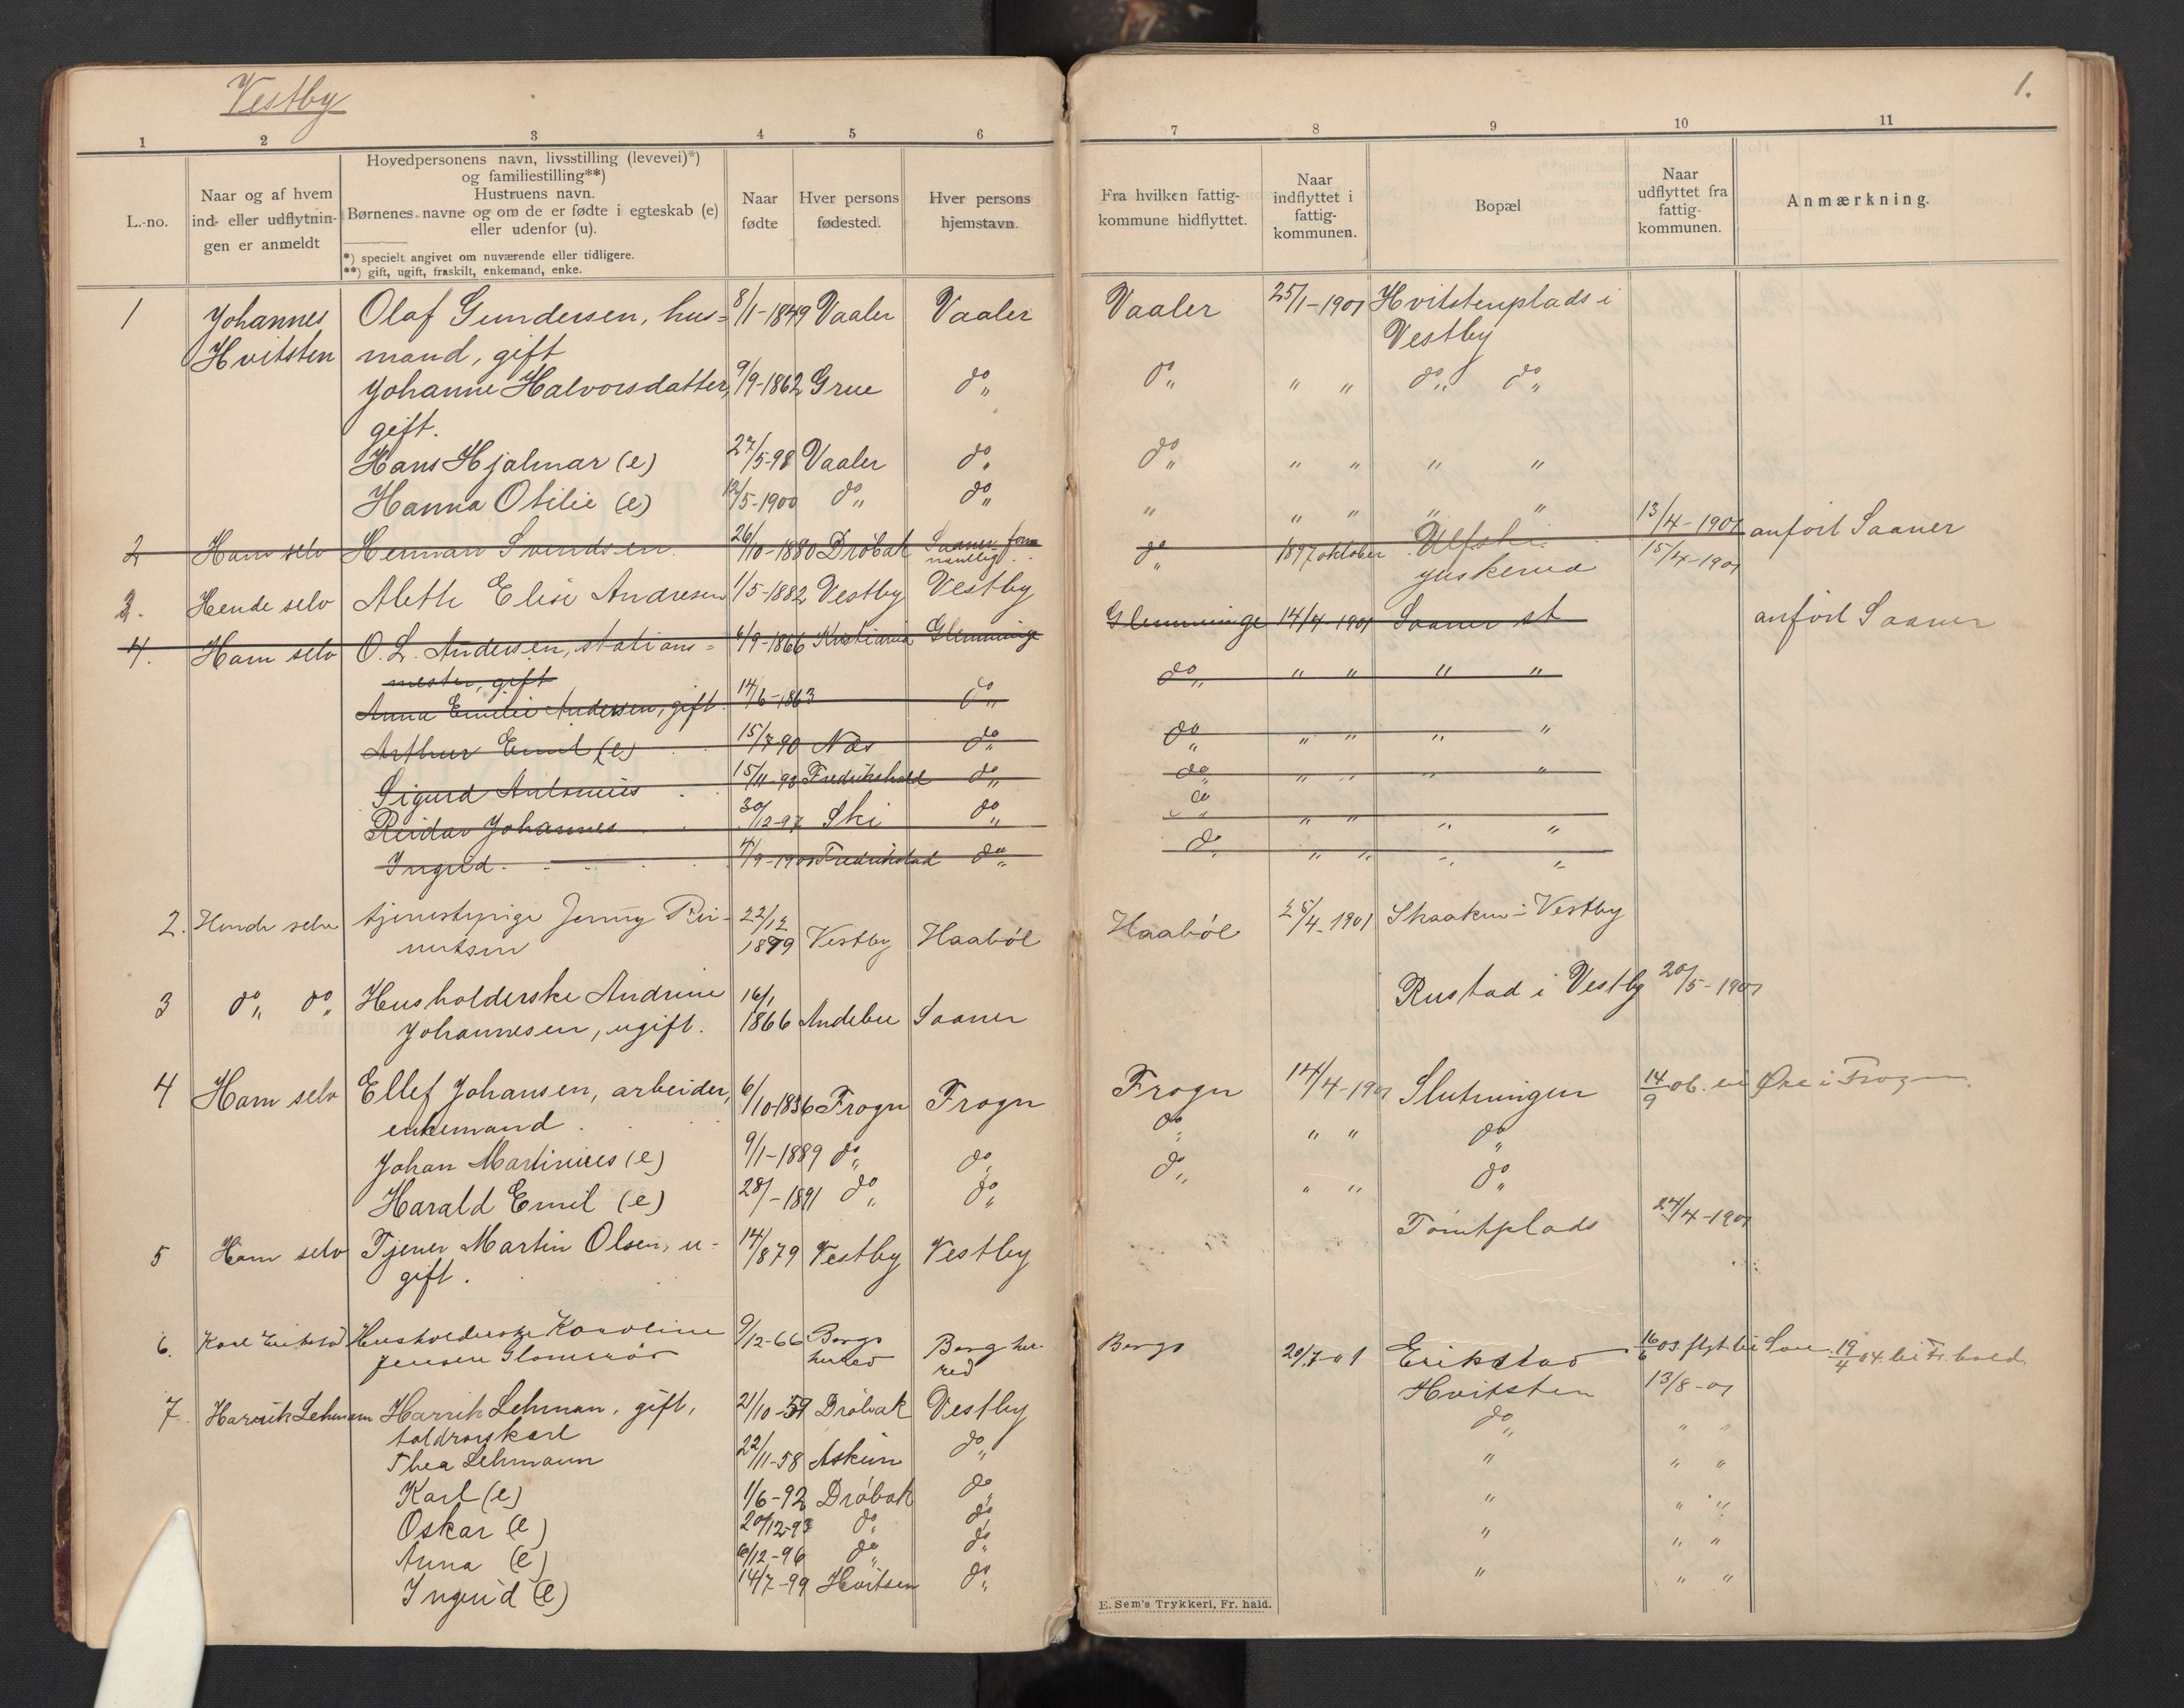 Vestby
1.
1 2 3 4 5 6 7 8 9 10 11
L.-no.
Naar og af hvem ind- eller udflytnin- gen er anmeldt
Hovedpersonens navn, livsstilling (levevei)*)
og familiestilling**)
Hustruens navn.
Børnenes navne og om de er fødte i egteskab (e)
eller udenfor (u).
*) specielt angivet om nuværende eller tidligere.
**) gift, ugift, fraskilt, enkemand, enke.
Naar fødte
Hver persons fødested.
Hver persons hjemstavn.
Fra hvilken fattig- kommune hidflyttet.
Naar indflyttet i fattig- kommunen.
Bopæl
Naar udflyttet fra fattig- kommunen.
Anmærkning.
1 Johannes Olaf Gundersen, hus= 8/1-1849 Vaaler Vaaler Vaaler 25/1-1901 Hvitstenplads i
Hvitsten mand, gift Vestby
Johanne Halvorsdatter, 9/9-1862 Grue do do " " do do
gift.
Hans Hjalmar (e) 27/5-98 Vaaler do do " " " "
Hanna Otilie (e) 12/5-1900 do do " " " " "
2 Ham selv Herman Svendsen. 26/10-1880 Drøbak Saaner do 1897 oktober 13/4-1901 anført Saaner
15/4-1901
3. Hende selv Alethe Elise Andresen 1/5-1882 Vestby Vestby
4. Ham selv O. L. Andersen, stations= 6/9-1866 Kristiania Glemminge Glemminge 14/4-1901 Saaner st anført Saaner
mester, gift
Anna Emilie Andersen, gift 14/6-1863 do do " " " "
Arthur Emil (e) 15/7 90 Næs do do " " " "
Sigurd Antonius 15/11-93 Fredrikshald do do " " " "
Reidar Johannes 30/12-97 Ski do do " " " "
Ingrid. 4/9-1900 Fredrikstad do do " " " "
2. Hende selv tjenestepige Jenny 22/12 Haabøl 25/4-1901 Skaaken i Vestby
1879 Vestby Haabøl
3 do do Husholderske Andrine 16/1 Rustad i Vestby 20/5-1901
Johannesen, ugift. 1866 Andebu Saaner
4 Ham selv Ellef Johansen, arbeider, 6/10-1836 Frogn Frogn Frogn 14/4-1901 Slutningen 14/9 06. Øre i Frogn
enkemand.
Johan Martinius (e) 9/1-1889 do do do " " do
Harald Emil (e) 28/-1891 do do do " " do
5 Ham selv Tjener Martin Olsen, u= 14/879 Vestby Vestby Tomtplads 24/4-1901
gift.
6. Karl Erikstad Husholderske Karoline 9/12-66 Borge Borg her- Borge 20/7-01 Erikstad 16/6 03. flyt. 19/4 04. Fr. hald.
Jensen herred red
7. Harrik Lehmann Harrik Lehman, gift, 21/10-59 Drøbak Vestby Hvitsten 13/8-01
toldroerskarl
Thea Lehmann 22/11-58 Askim do do " "
Karl (e) 1/6-92 Drøbak do " " "
Oskar (e) 20/12-93 do do " " "
Anna (e) 6/12-96 do do " " "
Ingrid (e) 14/7-99 Hvitsen do " " "
E. Sem's Trykkeri, Fr. hald.